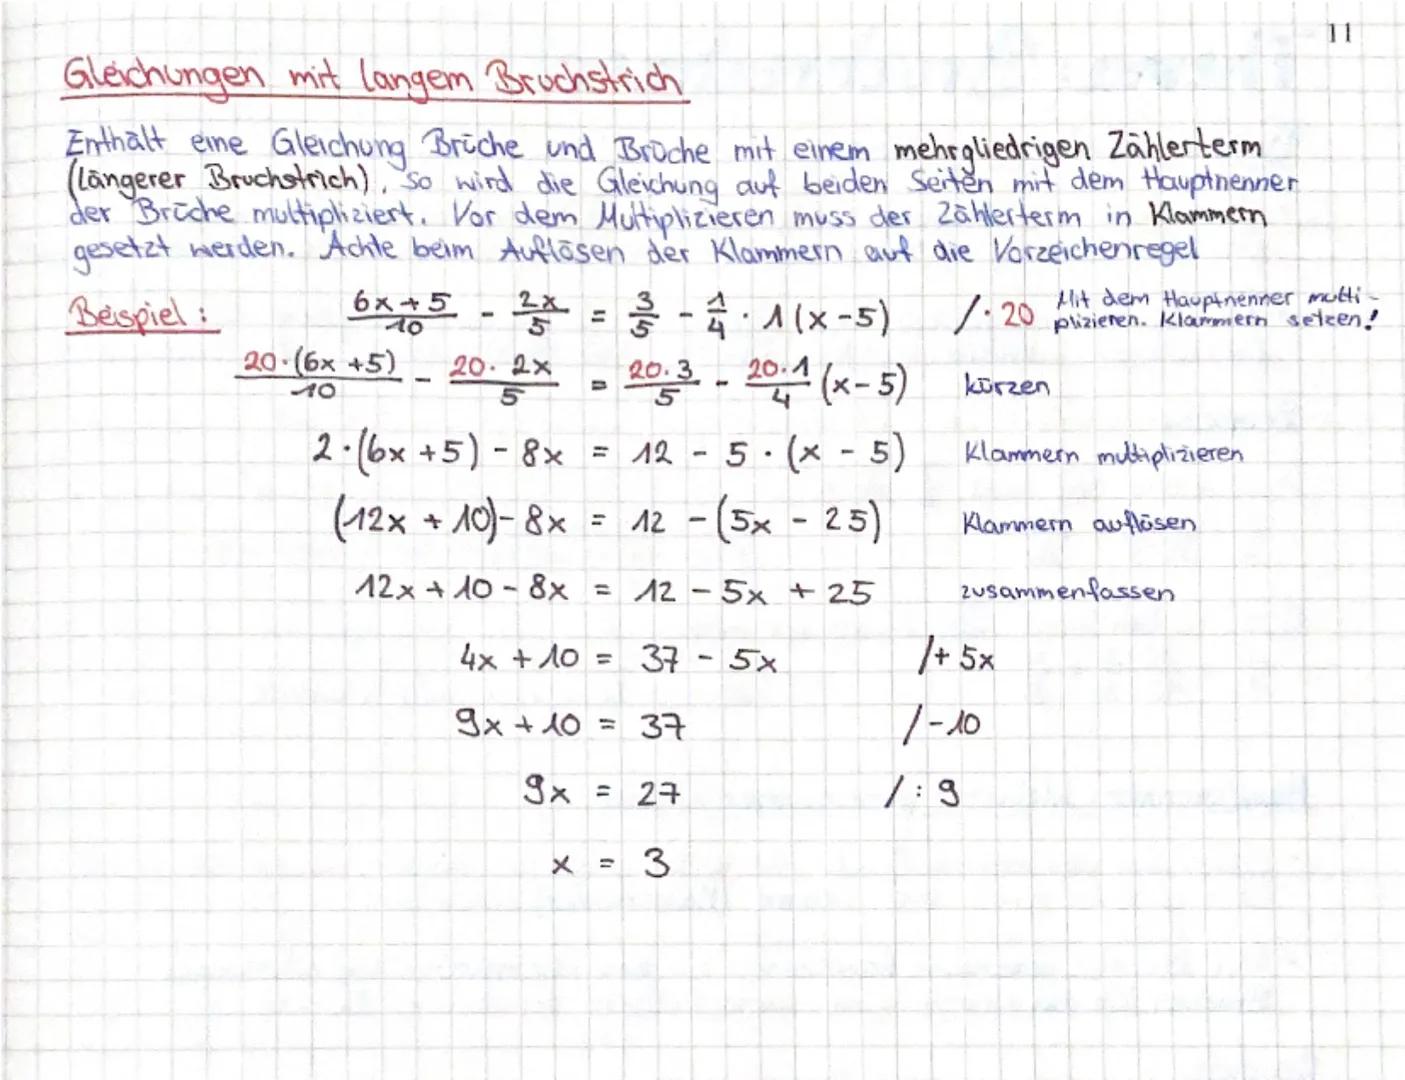 11
Gleichungen mit langem Bruchstrich
Enthält eine Gleichung Brüche und Brüche mit einem mehrgliedrigen Zählerterm
(längerer Bruchstrich), so wird die Gleichung auf beiden Seiten mit dem Hauptnenner
der Brüche multipliziert. Vor dem Multiplizieren muss der Zählerterm in Klammern
gesetzt werden. Achte beim Auflösen der Klammern auf die Vorzeichenregel
Beispiel: (6x + 5)/10 - 2x/5 = 3/5 - 1/4 · 1(x - 5) /· 20 Mit dem Hauptnenner multi-
plizieren. Klammern setzen!
20·(6x + 5)/10 - 20·2x/5 = 20·3/5 - 20·1/4 (x - 5) kürzen
2·(6x + 5) - 8x = 12 - 5 · (x - 5) Klammern multiplizieren
(12x + 10) - 8x = 12 - (5x - 25) Klammern auflösen
12x + 10 - 8x = 12 - 5x + 25 zusammenfassen
4x + 10 = 37 - 5x /+ 5x
9x + 10 = 37 /- 10
9x = 27 /: 9
x = 3